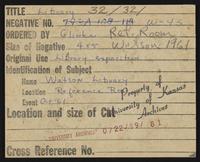 TITLE Library 32/32/
NEGATIVE NO.
ORDERED BY Ref. Room
Size of Negative 4x5 Watson 1961
Original Use Library exposition
Identification of Subject
Name Watson Library
Location Reference
Event Oct. 61
Location and size of
Property of
University of Kansas
Archives
UNIVERSITY ARCHIVES
Cross Reference No.